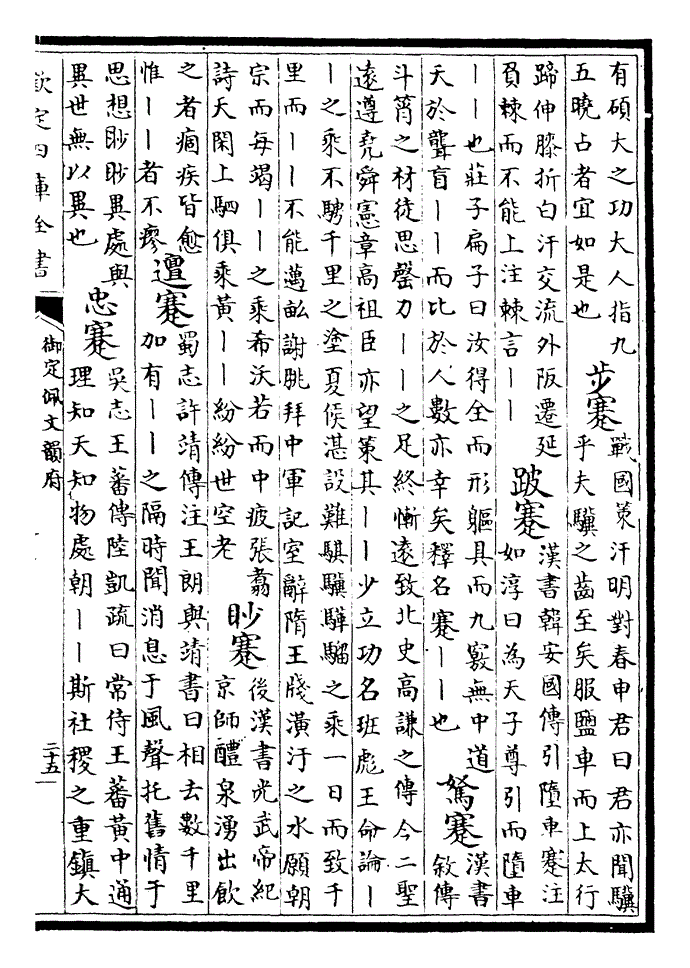 有碩大之功大人指九
五曉占者宜如是也
步蹇
戰國策汗明對春申君曰君亦聞驥
乎夫驥之齒至矣服鹽車而上太行
蹄伸膝折白汗交流外阪遷延
負棘而不能上注棘言丨丨
跛蹇
漢書韓安國傳引墮車蹇注
如淳曰為天子尊引而墮車
丨丨也莊子扁子曰汝得全而形軀具而九竅無中道
夭於聾盲丨丨而比於人數亦幸矣釋名蹇丨丨也
駑蹇
漢書
敘傳
斗筲之材徒思罄力丨丨之足終慚遠致北史高謙之傳今二聖
遠遵堯舜憲章高祖臣亦望策其丨丨少立功名班彪王命論丨
丨之乘不騁千里之塗夏侯湛設難騏驥驊騮之乘一日而致千
里而丨丨不能邁畝謝朓拜中軍記室辭隋王牋潢汙之水願朝
宗而每竭丨丨之乘希沃若而中疲張翥
詩天閑上駟俱乘黃丨丨紛紛世空老
眇蹇
後漢書光武帝紀
京師醴泉湧出飲
之者痼疾皆愈
惟丨丨者不瘳
邅蹇
蜀志許靖傳注王朗與靖書曰相去數千里
加有丨丨之隔時聞消息于風聲托舊情于
思想眇眇異處與
異世無以異也
忠蹇
吳志王蕃傳陸凱疏曰常侍王蕃黃中通
理知天知物處朝丨丨斯社稷之重鎮大
欽定四庫全書
御定佩文韻府
二十五